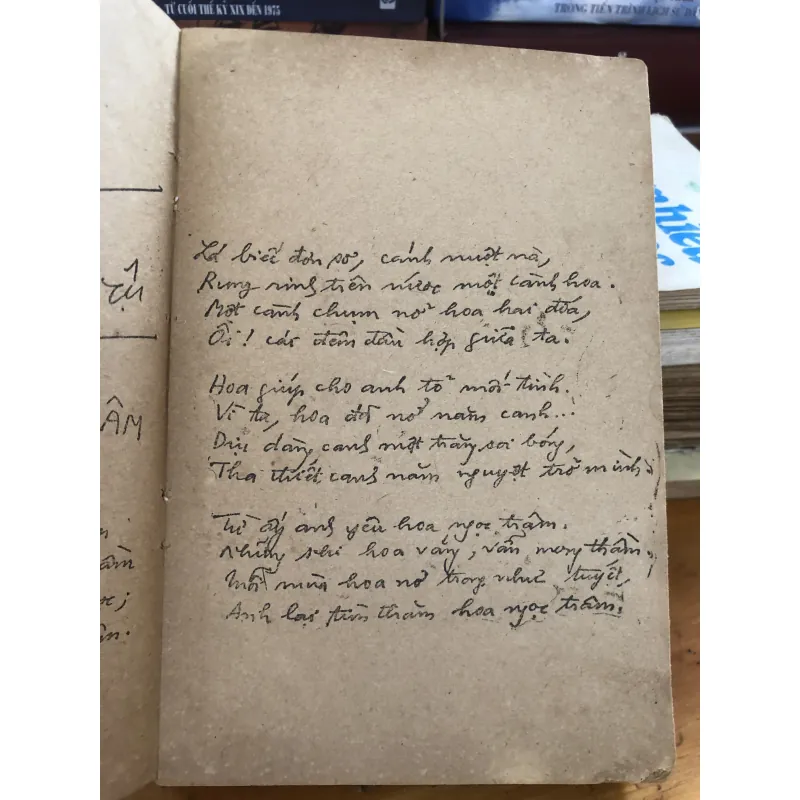 TỪ CUỐI THẾ KỶ XIX ĐẾN 1975
TRONG TIẾN TRÌNH LỊCH SỬ
ÂM
Lá biếc đơn sơ, cánh mượt mà,
Rung rinh trên nước một cành hoa.
Một cành chụm nở hoa hai đóa,
Ôi! các đêm đầu hợp giữa ta.
Hoa giúp cho anh tỏ mối tình.
Vì ta, hoa đã nở năm canh...
Dịu dàng canh một trăng soi bóng,
Tha thiết canh năm nguyệt trở mình.
Từ ấy anh yêu hoa ngọc trâm.
Những khi hoa vắng, vẫn mong thầm.
Mỗi mùa hoa nở trong như tuyết,
Anh lại tìm thăm hoa ngọc trâm.